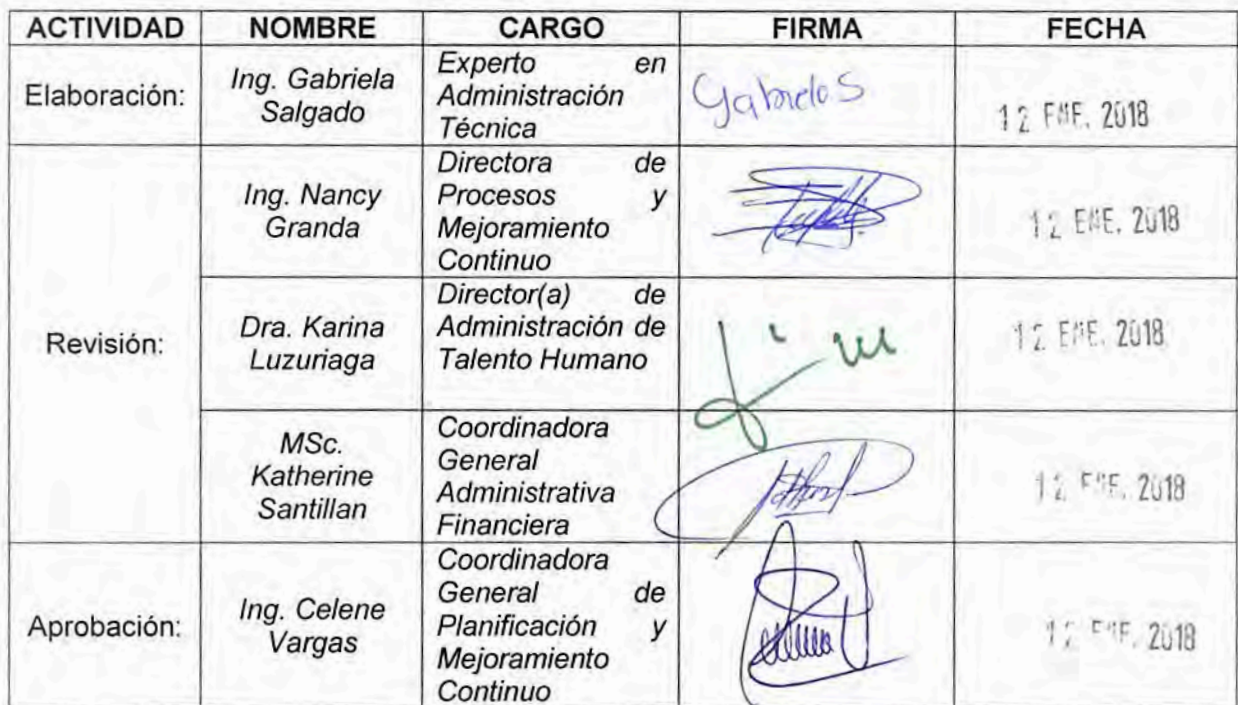 ACTIVIDAD NOMBRE CARGO FIRMA FECHA
Elaboración:
Ing. Gabriela
Salgado
Experto en
Administración
Técnica
Gabriela S
12 ENE. 2018
Revisión:
Ing. Nancy
Granda
Directora de
Procesos y
Mejoramiento
Continuo
12 ENE. 2018
Dra. Karina
Luzuriaga
Director(a) de
Administración de
Talento Humano
12 ENE. 2018
MSc.
Katherine
Santillan
Coordinadora
General
Administrativa
Financiera
12 ENE. 2018
Aprobación:
Ing. Celene
Vargas
Coordinadora
General de
Planificación y
Mejoramiento
Continuo
12 ENE. 2018